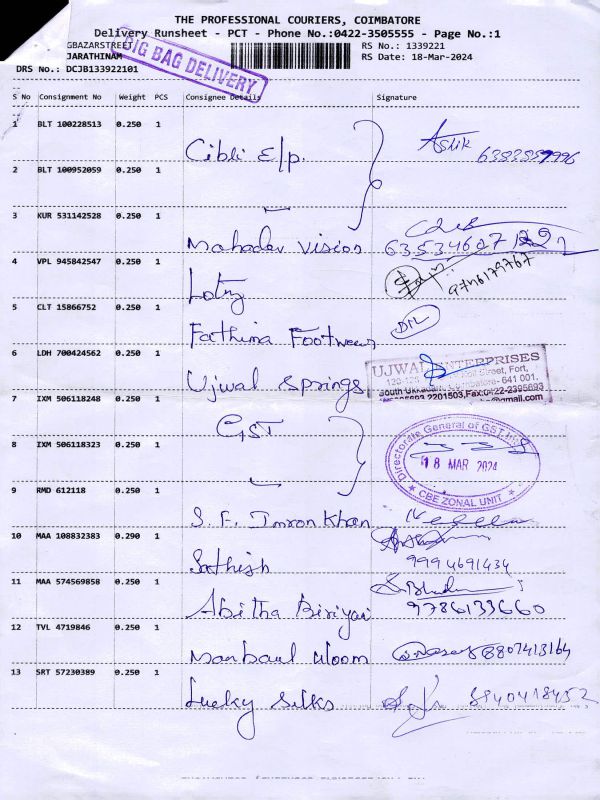 THE PROFESSIONAL COURIERS, COIMBATORE
Delivery Runsheet - PCT - Phone No.:0422-3505555 - Page No.:1
GBAZARSTREET
RS No.: 1339221
JARATHINAM
RS Date: 18-Mar-2024
DRS No.: DCJB133922101
BIG BAG DELIVERY
S No Consignment No Weight PCS Consignee Details Signature
1 BLT 100228513 0.250 1 Cibli E/p. Ashik
2 BLT 100952059 0.250 1
3 KUR 531142528 0.250 1 Mahadev Vision
4 VPL 945842547 0.250 1 9746179767
5 CLT 15866752 0.250 1 Fathima Footwear
6 LDH 700424562 0.250 1 Ujwal Springs
UJWAL ENTERPRISES
Street, Fort,
Coimbatore- 641 001.
2201503,Fax:0422-2395693
@gmail.com
7 IXM 506118248 0.250 1 GST
8 IXM 506118323 0.250 1
Directorate General of GST
18 MAR 2024
CBE ZONAL UNIT
9 RMD 612118 0.250 1 S. F. Imran Khan
10 MAA 108832383 0.290 1 Sathish 9994691434
11 MAA 574569858 0.250 1 Abitha Biriyani 9786133660
12 TVL 4719846 0.250 1 8807413164
13 SRT 57230389 0.250 1 Lucky Silks 8940418452